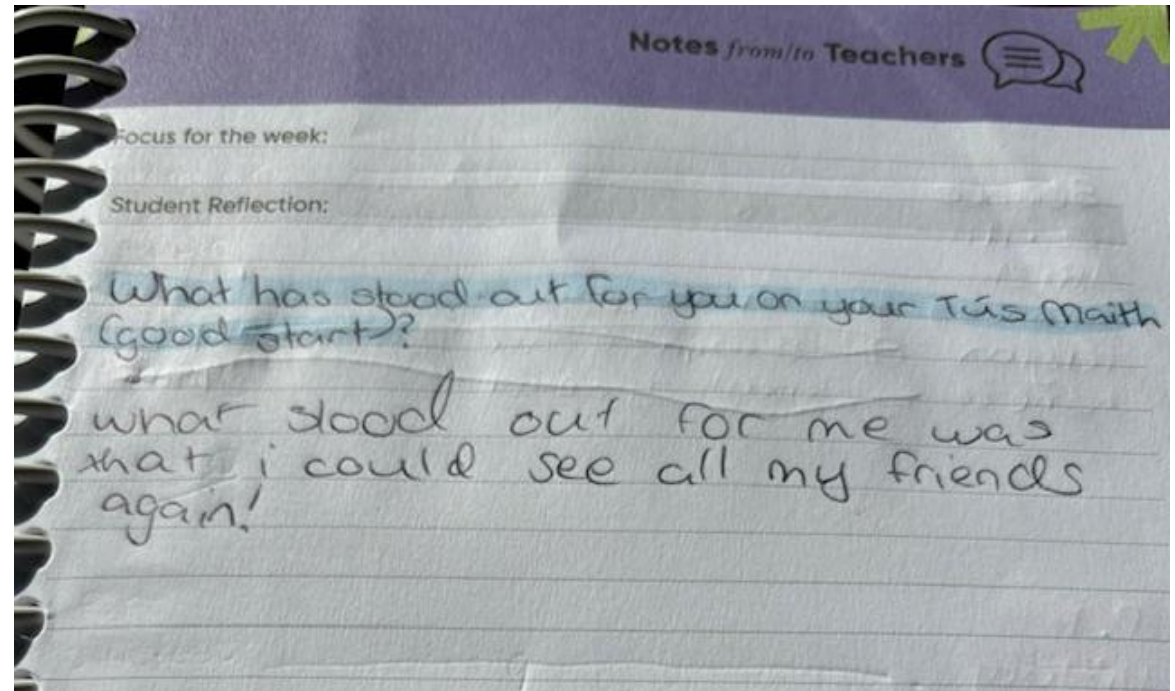 Notes from/to Teachers
Focus for the week:
Student Reflection:
What has stood out for you on your Tús Maith
(good start)?
what stood out for me was
that i could see all my friends
again!